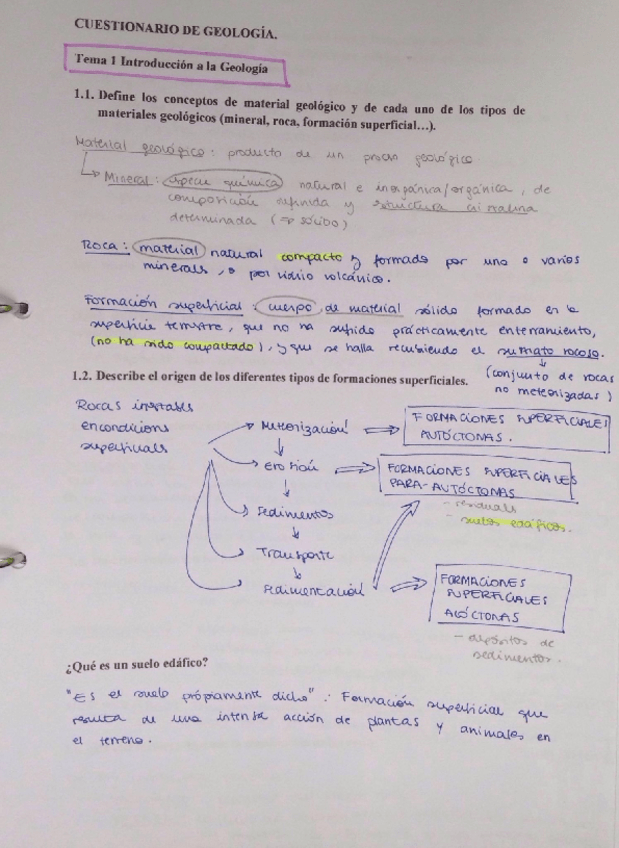 CUESTIONARIO DE GEOLOGÍA.
Tema 1 Introducción a la Geología
1.1. Define los conceptos de material geológico y de cada uno de los tipos de
materiales geológicos (mineral, roca, formación superficial...).
Material geológico: producto de un proceso geológico.
Mineral: especie química natural e inorgánica/orgánica, de
composición definida y estructura cristalina
determinada (⇒ sólido)
Roca: material natural compacto y formado por uno o varios
minerales, o por vidrio volcánico.
Formación superficial: cuerpo de material sólido formado en la
superficie terrestre, que no ha sufrido prácticamente enterramiento,
(no ha sido compactado), y que se halla recubriendo el sustrato rocoso.
(conjunto de rocas
no meteorizadas)
1.2. Describe el origen de los diferentes tipos de formaciones superficiales.
Rocas inestables
en condicions
superficials
Meteorización
FORMACIONES SUPERFICIALES
AUTÓCTONAS.
erosión
FORMACIONES SUPERFICIALES
PARA-AUTÓCTONAS
- residuals
- suelos edáficos.
Sedimentos
Transporte
Sedimentación
FORMACIONES
SUPERFICIALES
ALÓCTONAS
- depósitos de
sedimentos.
¿Qué es un suelo edáfico?
"Es el suelo própiamente dicho": Formación superficial que
resulta de una intensa acción de plantas y animales en
el terreno.